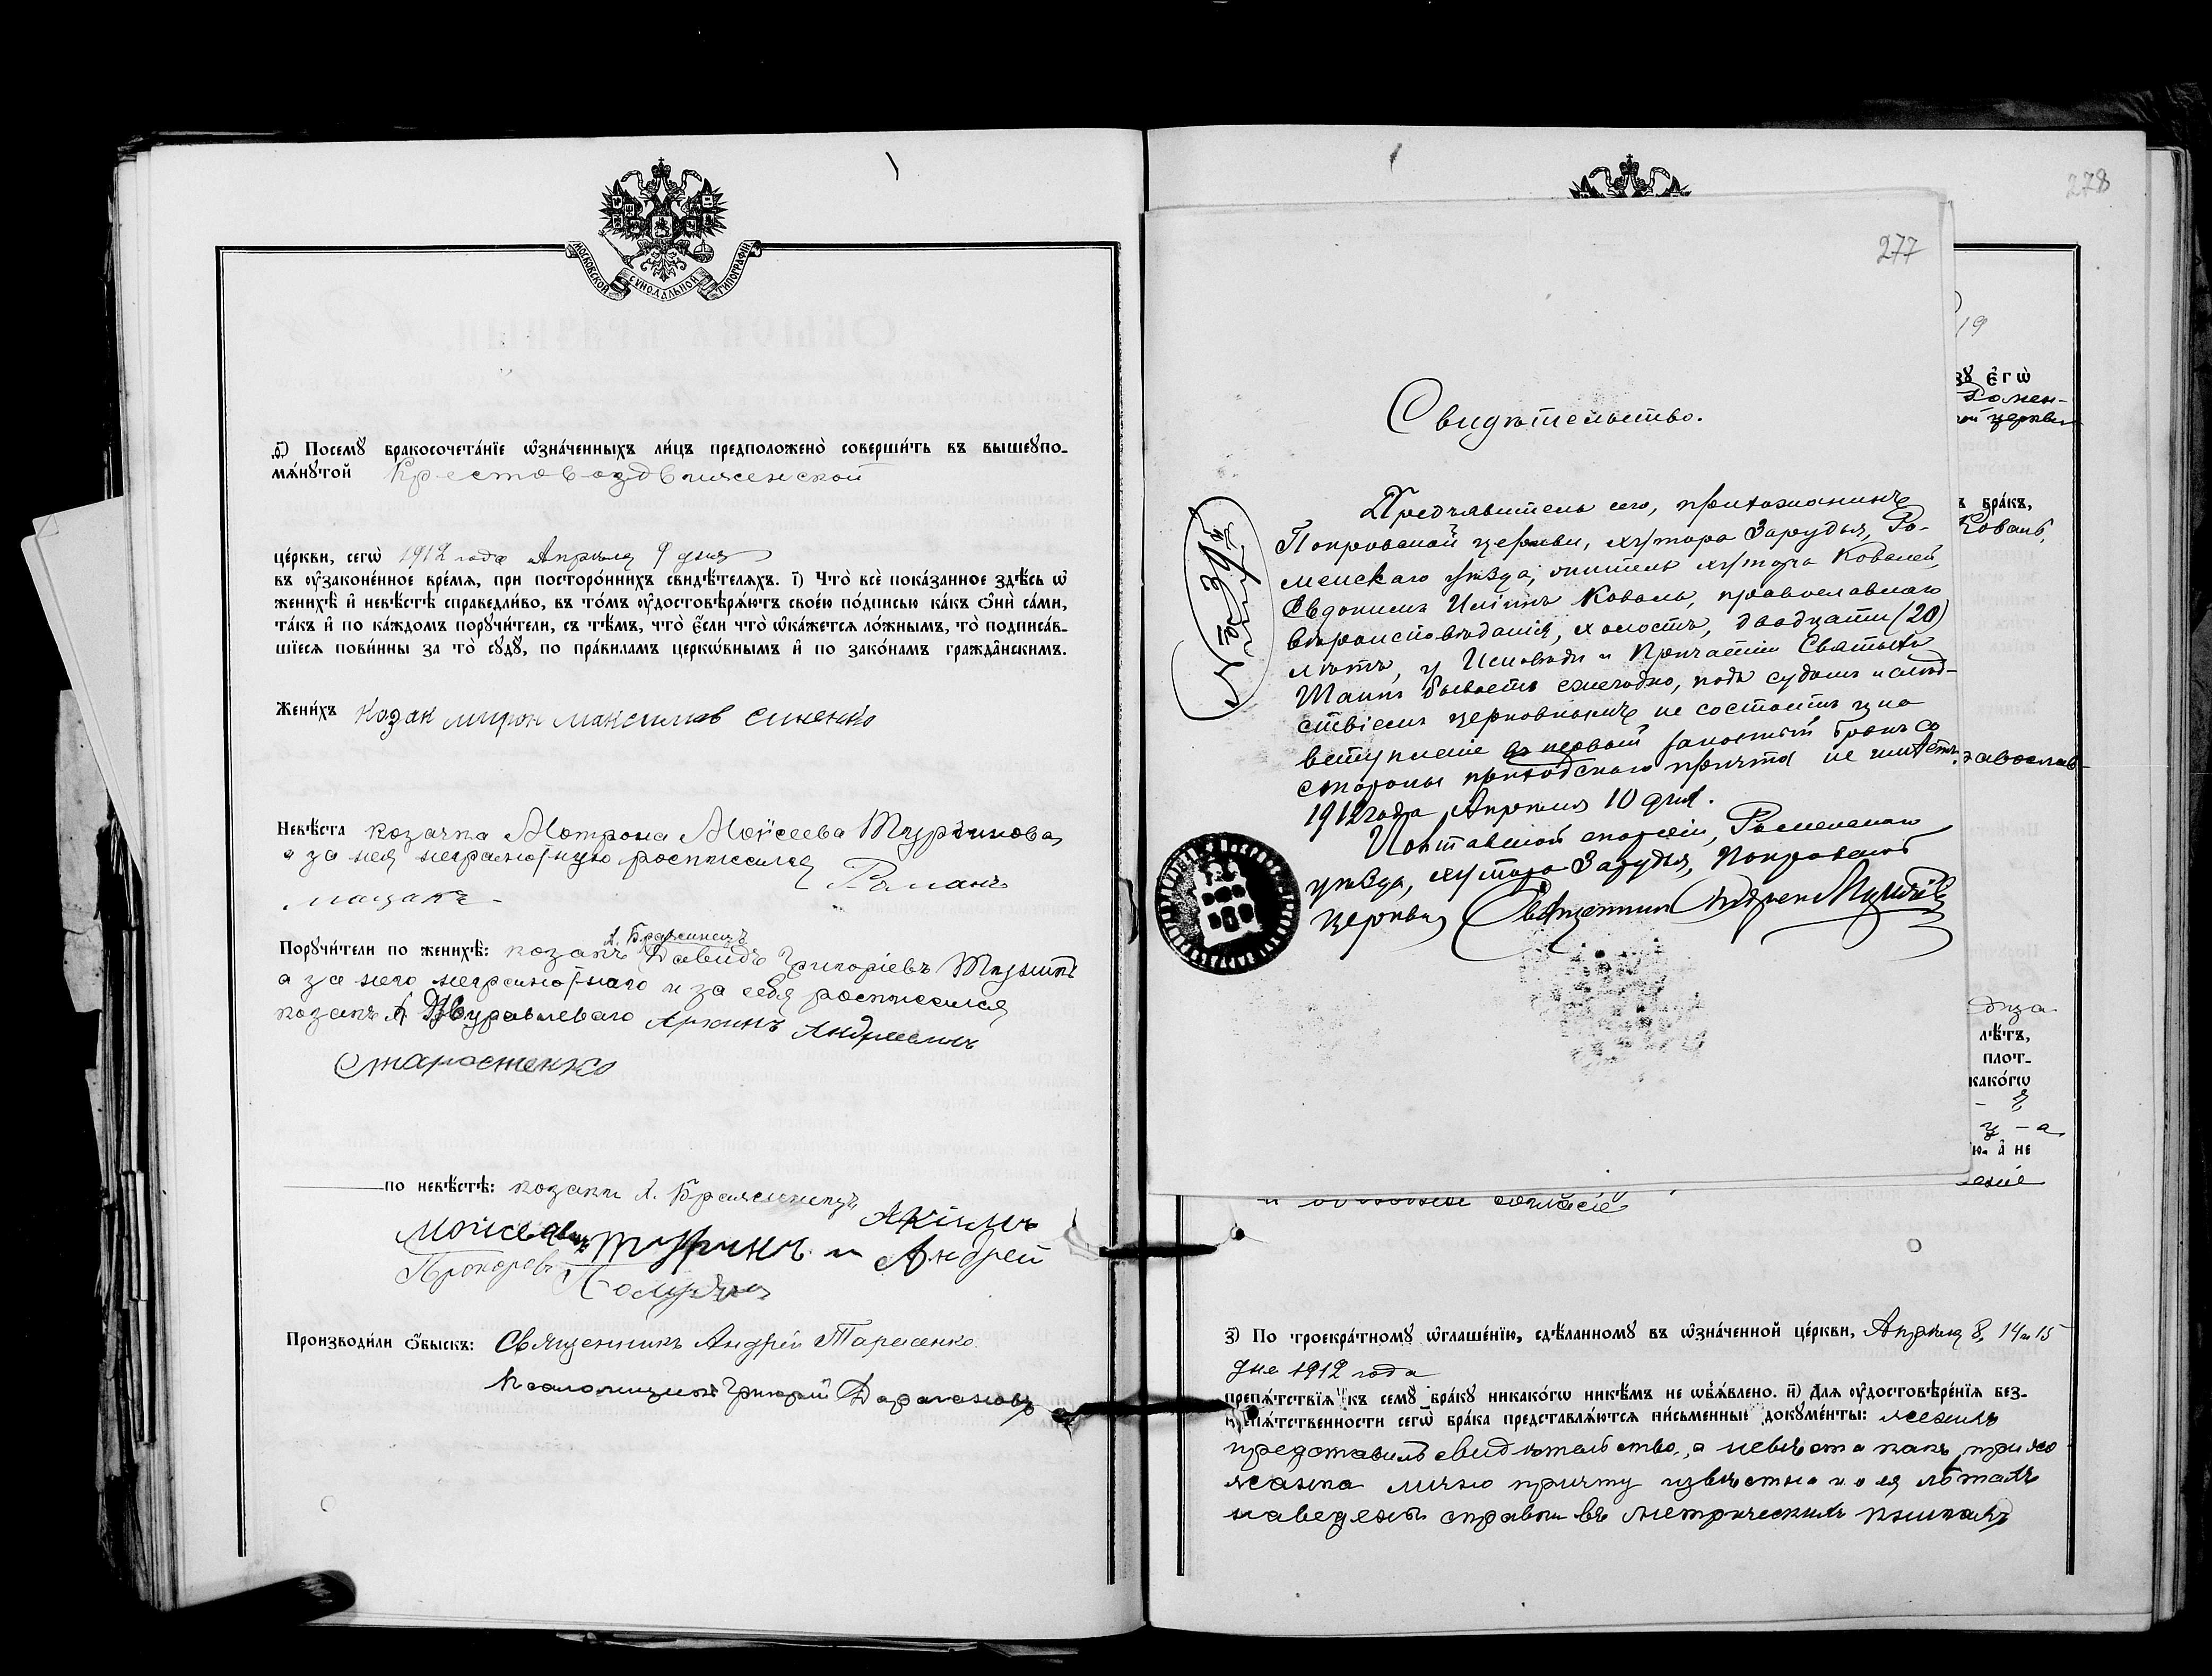 МОСКОВСКОЙ СѴНОДАЛЬНОЙ ТИПОГРАФІИ
Посемꙋ бракосочета́нїе ѡ҆зна́ченныхъ ли́цъ предположено̀ соверши́ть въ вышеꙋпо-
мѧ́нꙋтой Крестовоздвиженской
це́ркви, сегѡ̀ 1912 года Апрѣля 9 дня
въ ᲂу҆законе́нное вре́мѧ, при посторо́ннихъ свидѣ́телѧхъ. і҃) Что̀ всѐ пока́занное здѣ́сь ѡ҆
женихѣ̀ и҆ невѣ́стѣ справедли́во, въ то́мъ ᲂу҆достовѣрѧ́ютъ свое́ю по́дписью ка́къ ѻ҆нѝ са́ми,
та́къ и҆ по ка́ждомъ порꙋчи́тели, съ тѣ́мъ, что̀ є҆́сли что̀ ѡ҆ка́жетсѧ ло́жнымъ, то̀ подписа́в-
шїесѧ пови́нны за то̀ сꙋдꙋ̀, по пра́виламъ церко́внымъ и҆ по зако́намъ гражда́нскимъ.
Жени́хъ козак мирон максимов синенко
Невѣ́ста козачка Мотрона Моѵсеева Турчинова
а за нея неграмотную росписался Роман
мацакъ
А. Бражинецъ
Порꙋчи́тели по женихѣ̀: козакъ Давидъ Григоріевъ
а за него неграмотнаго и за себя росписался
козакъ Журавлеваго Акимъ Андреевичъ
Старостенко
по невѣ́стѣ: козаки
Мойсеевичъ Турчинъ и Андрей
Прокоровъ
Производи́ли ѻ҆́быскъ: Священникъ Андрей Тарасенко
Псаломщикъ Григорій Дараганов
278
277
19
є҆гѡ̀
Ромен-
церкви
бра́къ,
Коваль,
№ 39й
Свидѣтельство.
Предъявитель сего, прихожанинъ
Покровской церкви, хутора Зарудья, Ро-
менскаго уѣзда, житель хутора Ковалей,
Евдокимъ Иліинъ Коваль, православнаго
вѣроисповѣданія, холостъ, двадцати (20)
лѣтъ, у Исповѣди и Причастія Святыхъ
Таинъ бываетъ ежегодно, подъ судомъ и слѣд-
ствіемъ церковнымъ не состоитъ и на
вступленіе въ первый законный бракъ со
стороны приходскаго причта не имѣетъ.
1912 года Апрѣля 10 дня.
Полтавской епархіи, Роменскаго
уѣзда, хутора Зарудья, Покровской
церкви Священникъ Андрей
православ-
лѣ́тъ,
плот-
како́гѡ
а҆ не
согласіе
з҃) По троекра́тномꙋ ѡ҆глаше́нїю, сдѣ́ланномꙋ въ ѡ҆зна́ченной це́ркви, Апрѣля 8, 14 и 15
дня 1912 года
препѧ́тствїѧ къ семꙋ̀ бра́кꙋ никако́гѡ никѣ́мъ не ѡ҆б̾ѧ́влено. и҃) Длѧ ᲂу҆достовѣре́нїѧ без-
препѧ́тственности сегѡ̀ бра́ка представлѧ́ютсѧ пи́сьменные докꙋме́нты: женихъ
представилъ свидѣтельство, а невѣста какъ прихо
жанка лично причту извѣстна и о ея лѣтахъ
наведены справки въ метрическихъ книгахъ